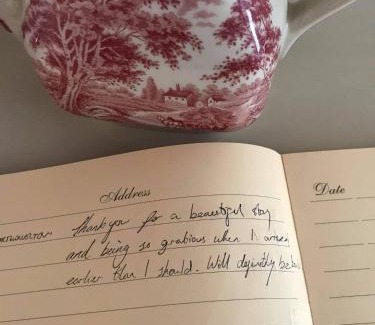 Address
Date
Thank you for a beautiful stay
and being so gratious when I
earlier than I should. Will definitely be